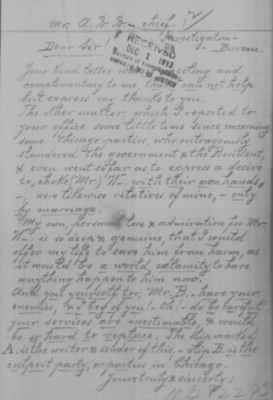 Mr. A. B. B— Chief—
Investigation—
Bureau.
Dear Sir!
RECEIVED
DEC 1
Your kind letter was
and
complimentary to me, that I can not help
but express my thanks to you.
The other matter, which I reported to
your office some little time since, concerning
some Chicago parties, who outrageously
slandered the government & the President,
& even went so far as to express a desire
to, choke (Mr.) W— with their own hands,
were likewise relatives of mine, — only
by marriage.
My own, personal love & admiration for Mr.
W— is so deep & genuine, that I would
offer my life to save him from harm, as
it would be a world calamity to have
anything happen to him now.
And you yourself too, Mr. B— have your
enemies,
of you! Oh — do be careful
your services are inestimable & would
be so hard to replace. The slip marked
A. is the writer & sender of this — slip B. is the
culprit party, or parties in Chicago.
Yours truly & sincerely: